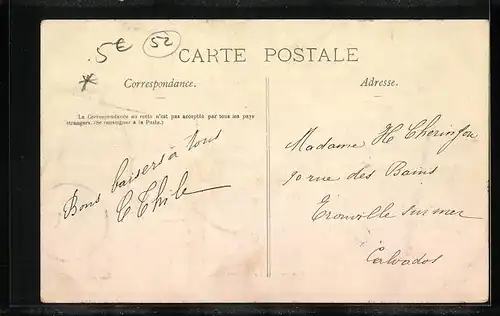 5€
52
*
CARTE POSTALE
Correspondance.
Adresse.
La Correspondance au recto n'est pas acceptée par tous les pays
étrangers. (Se renseigner à la Poste.)
Bons baisers à tous
Madame H
rue des Bains
Trouville sur mer
Calvados